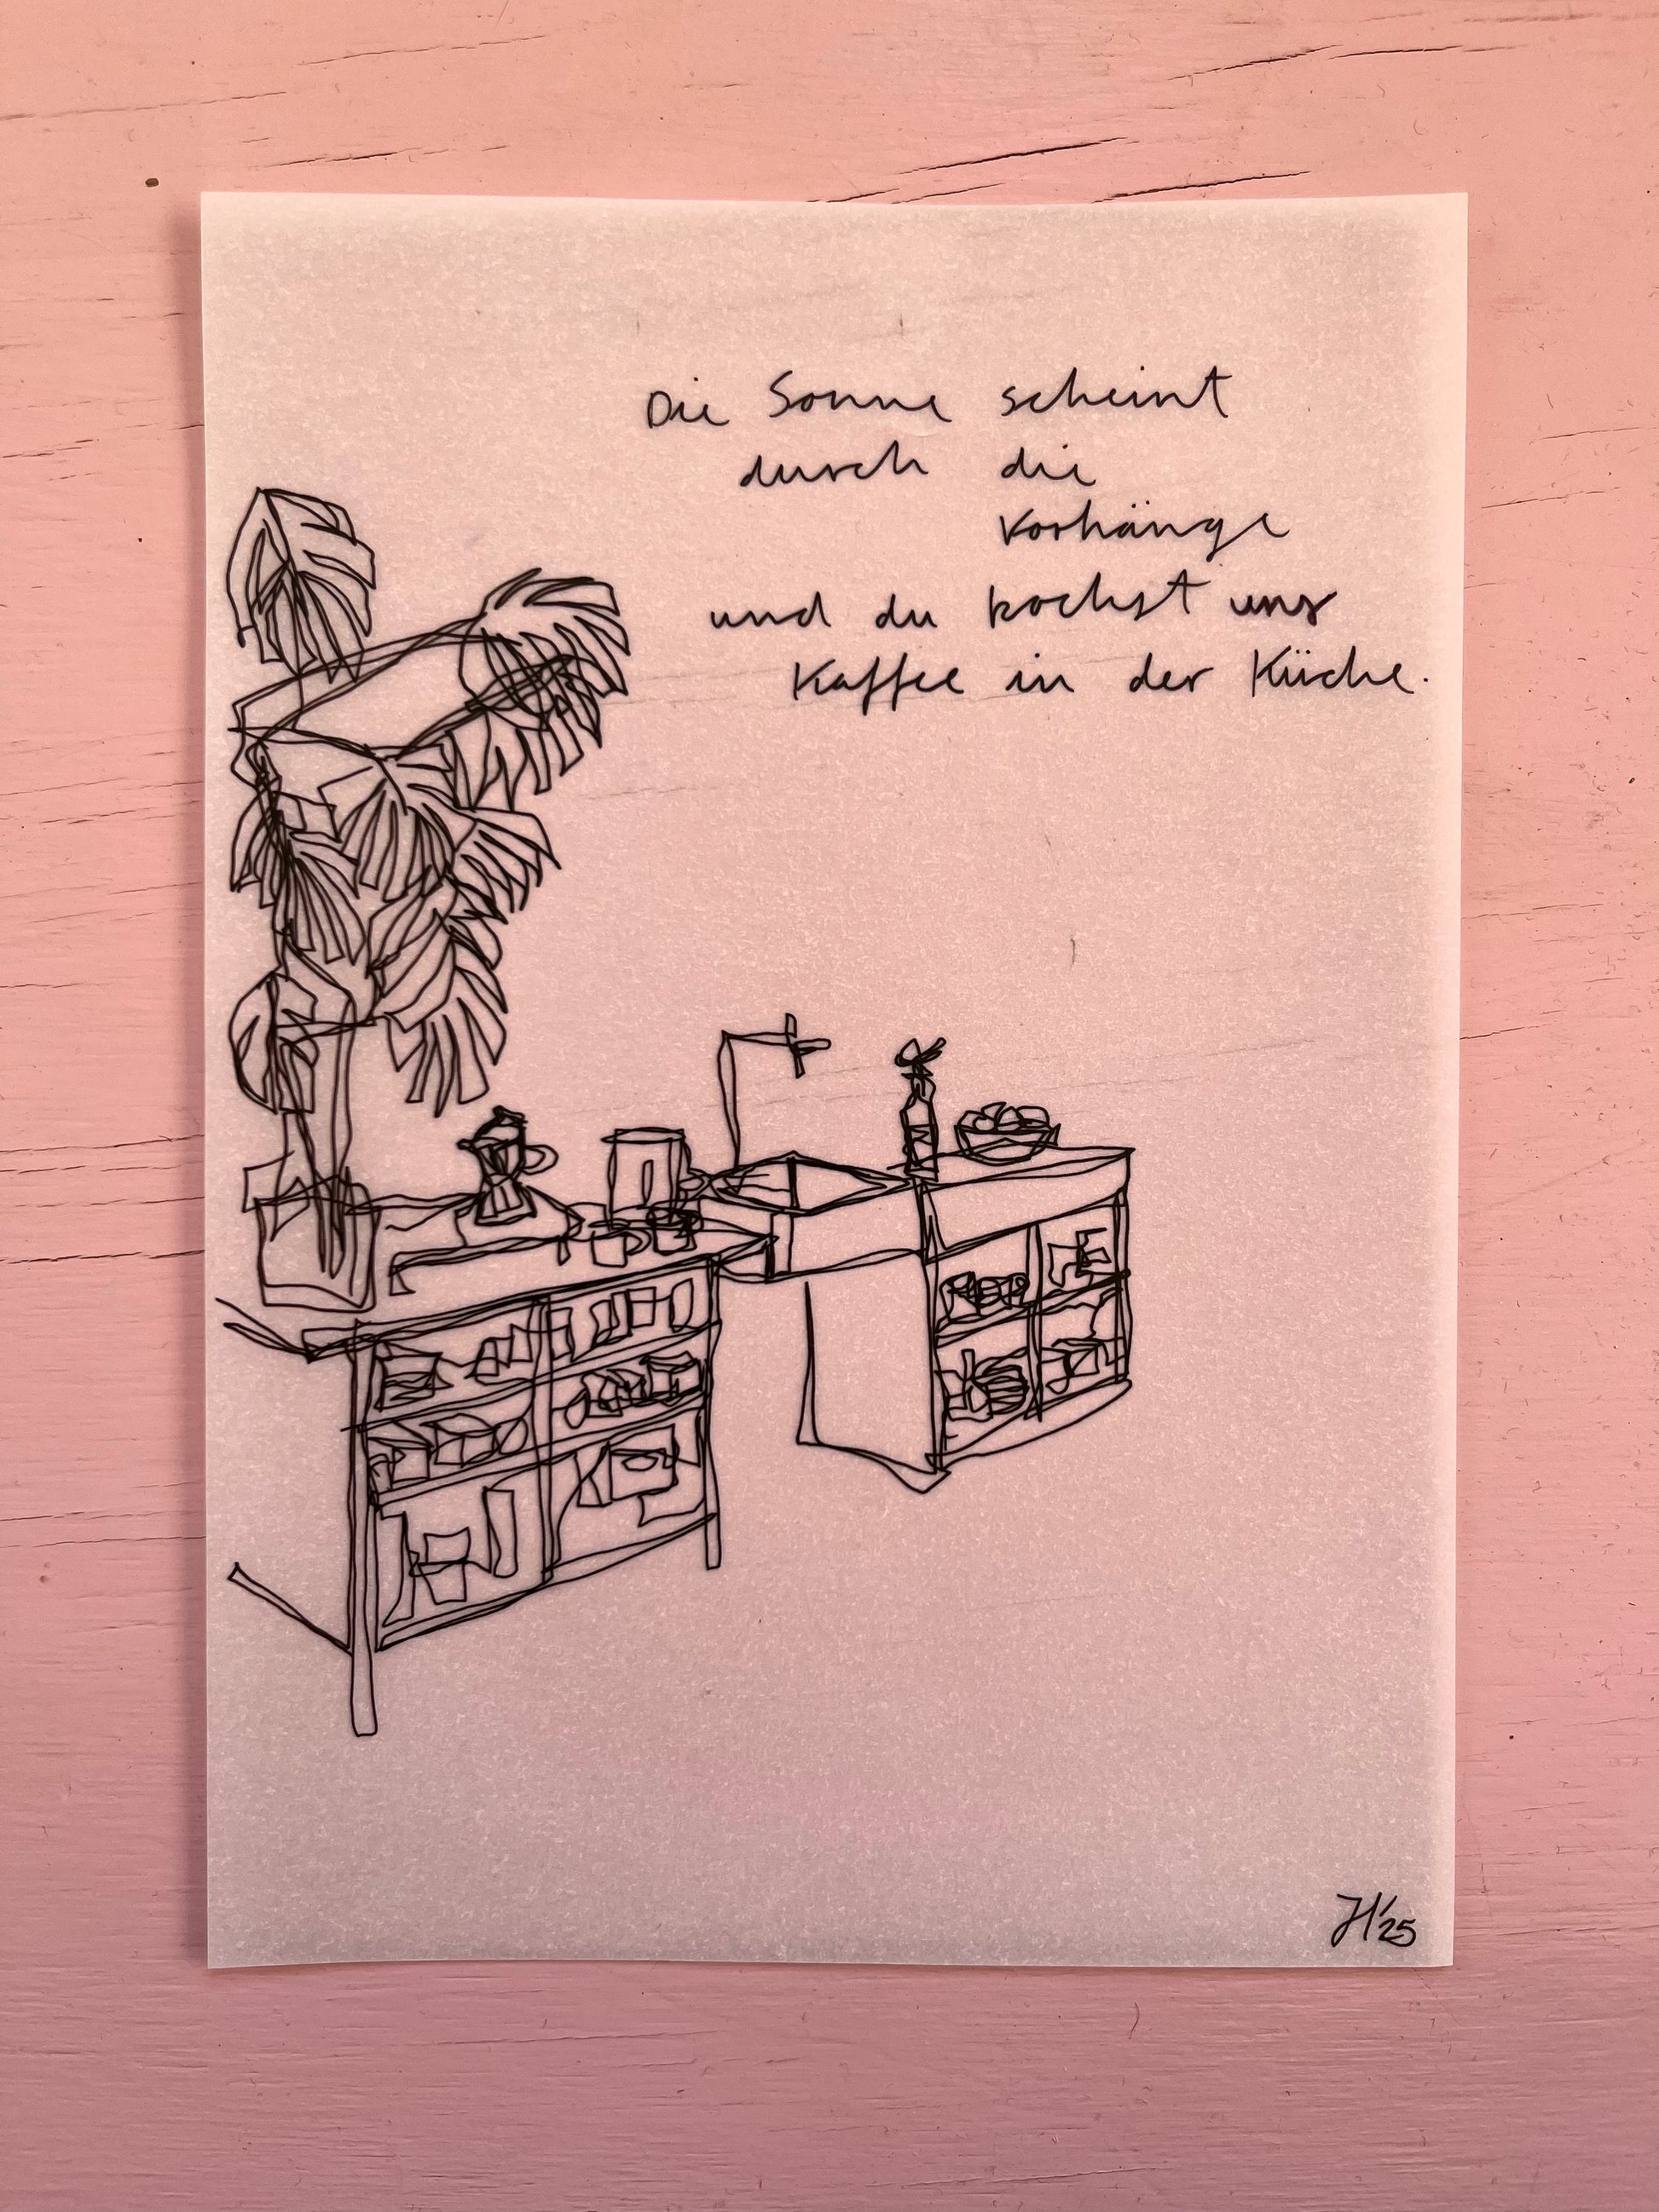 Die Sonne scheint
durch die
Vorhänge
und du kochst uns
Kaffee in der Küche.
JH'25